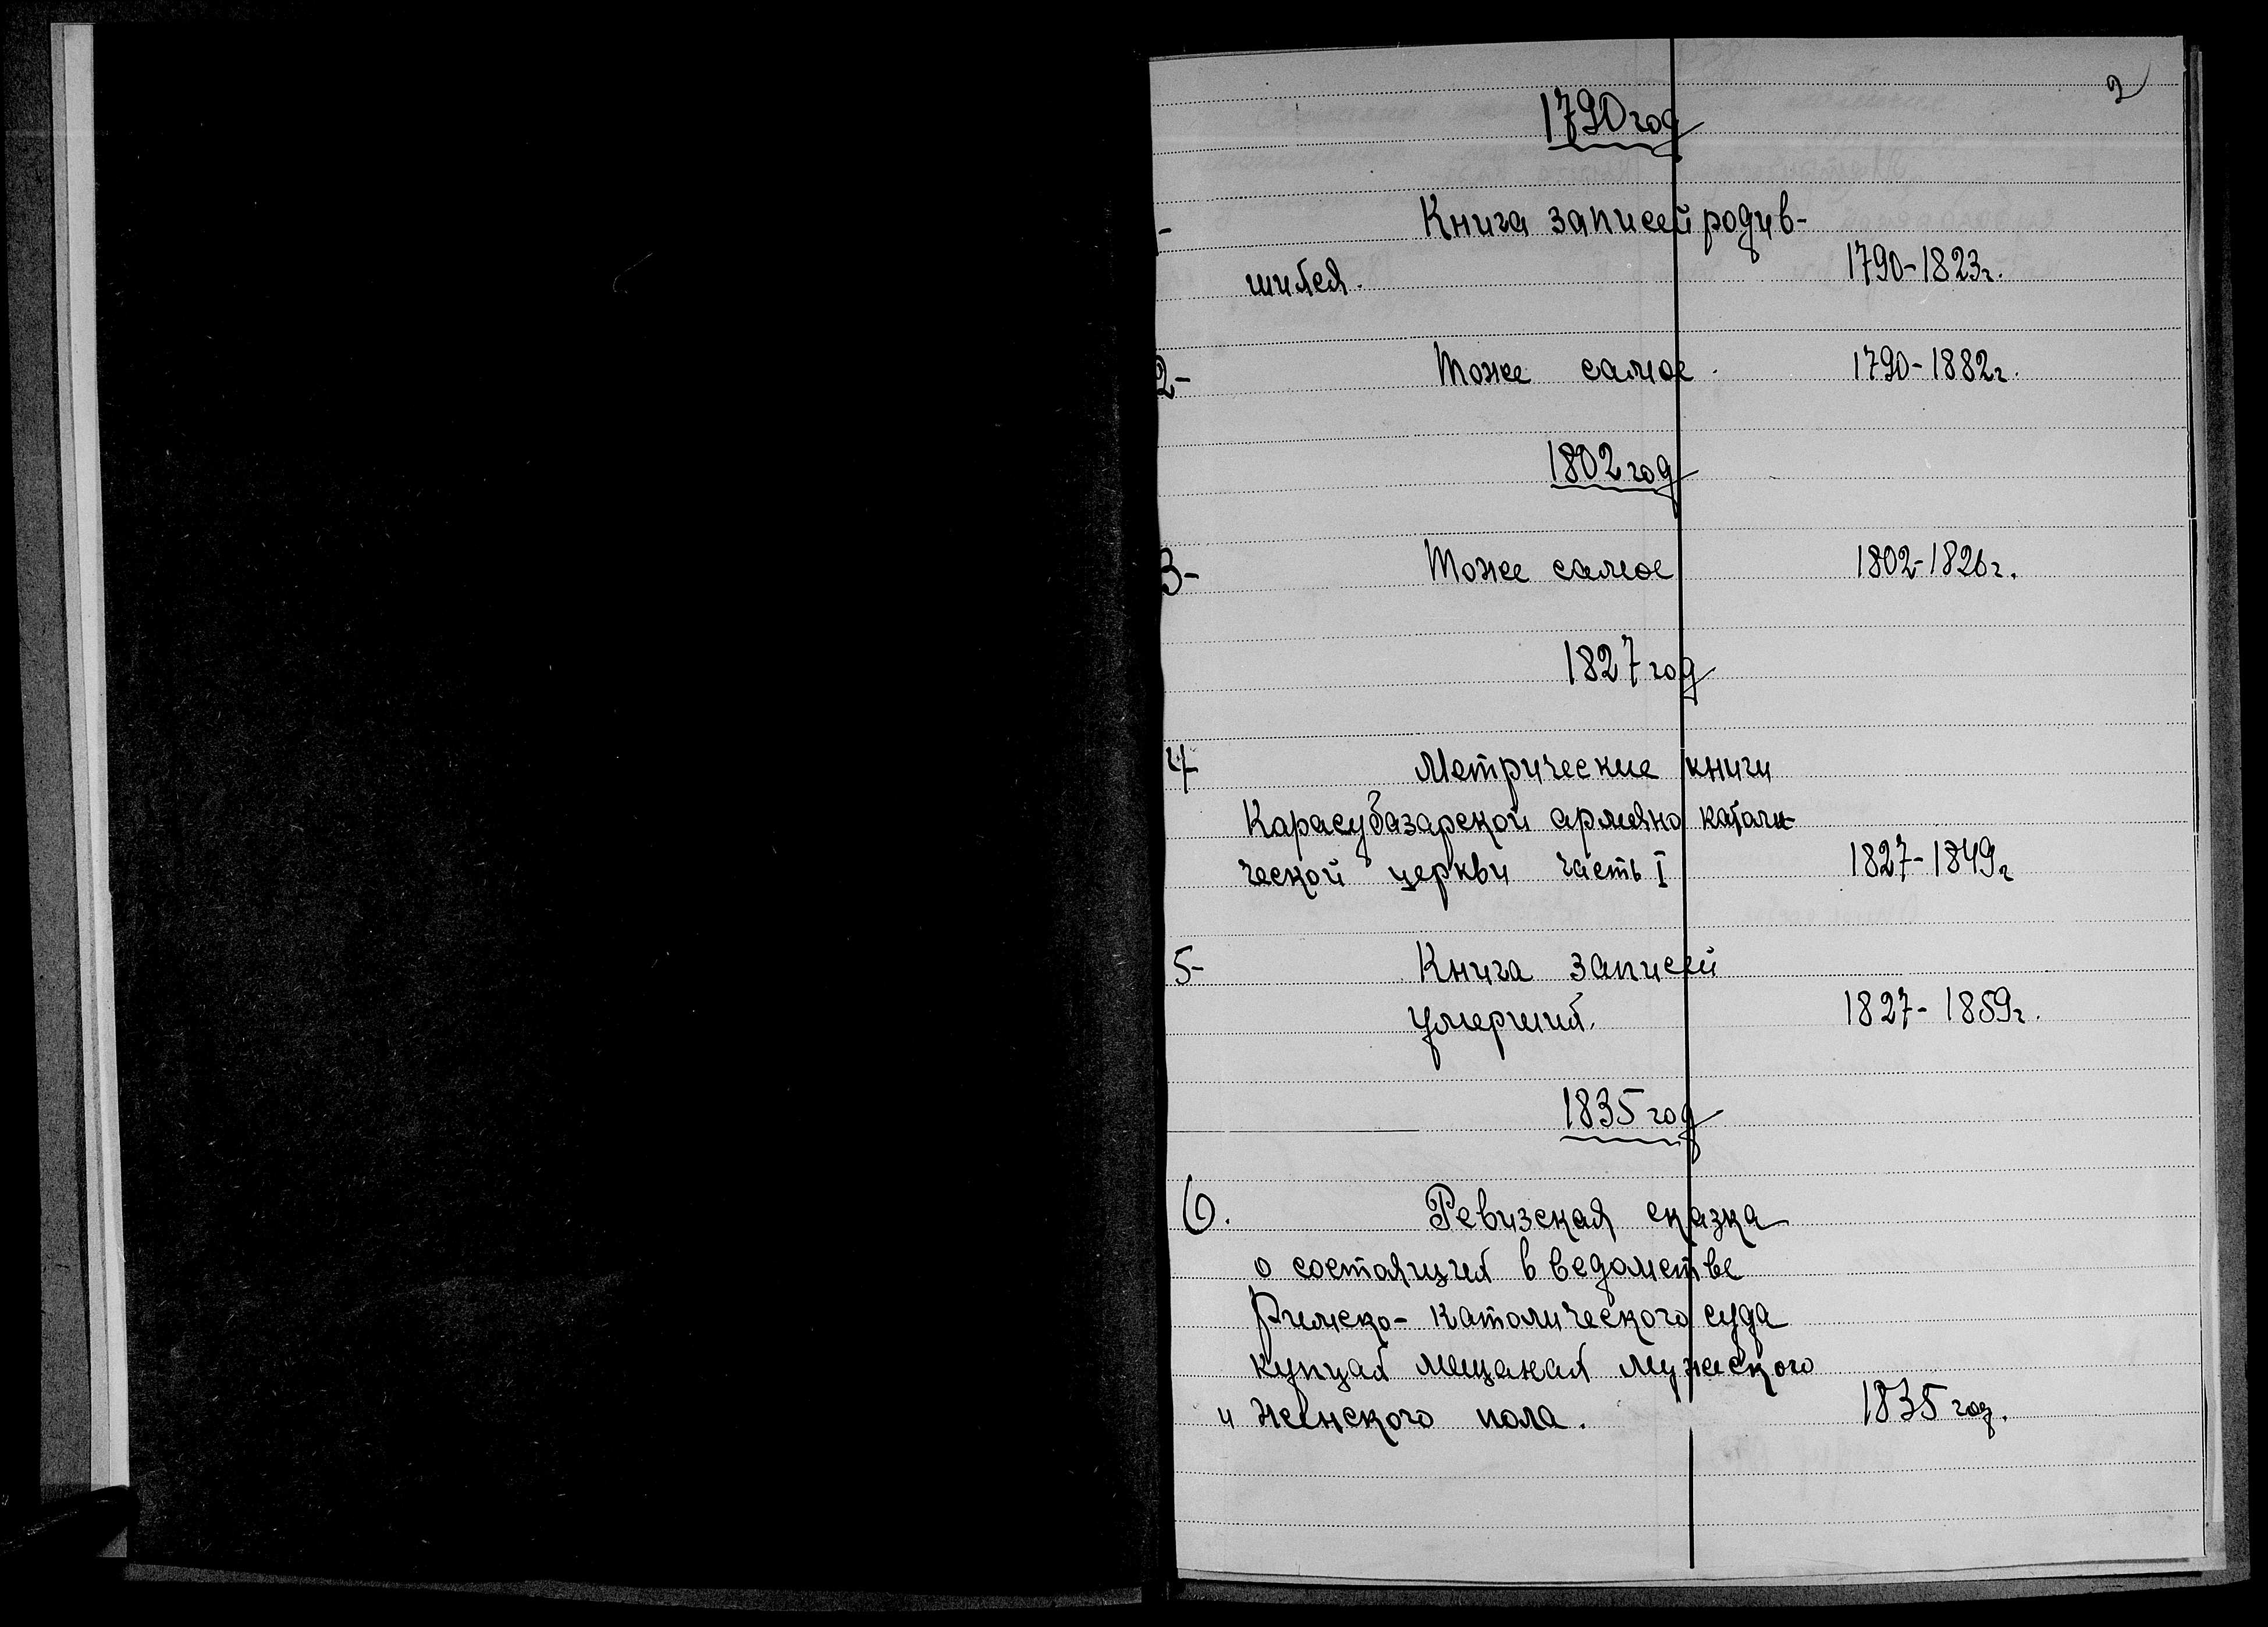 2
1790 год
- Книга записей родив-
шихся. 1790-1823г.
2- Тоже самое. 1790-1882г.
1802 год
3- Тоже самое 1802-1826г.
1827 год
4- Метрические книги
Карасубазарской армяно катали-
ческой церкви часть I 1827-1849г
5- Книга записей
умерших. 1827-1859г.
1835 год
6. Ревизская сказка
о состоящих в ведомстве
Римско-Католического суда
купцах мещанах мужеского
и женского пола. 1835 год.